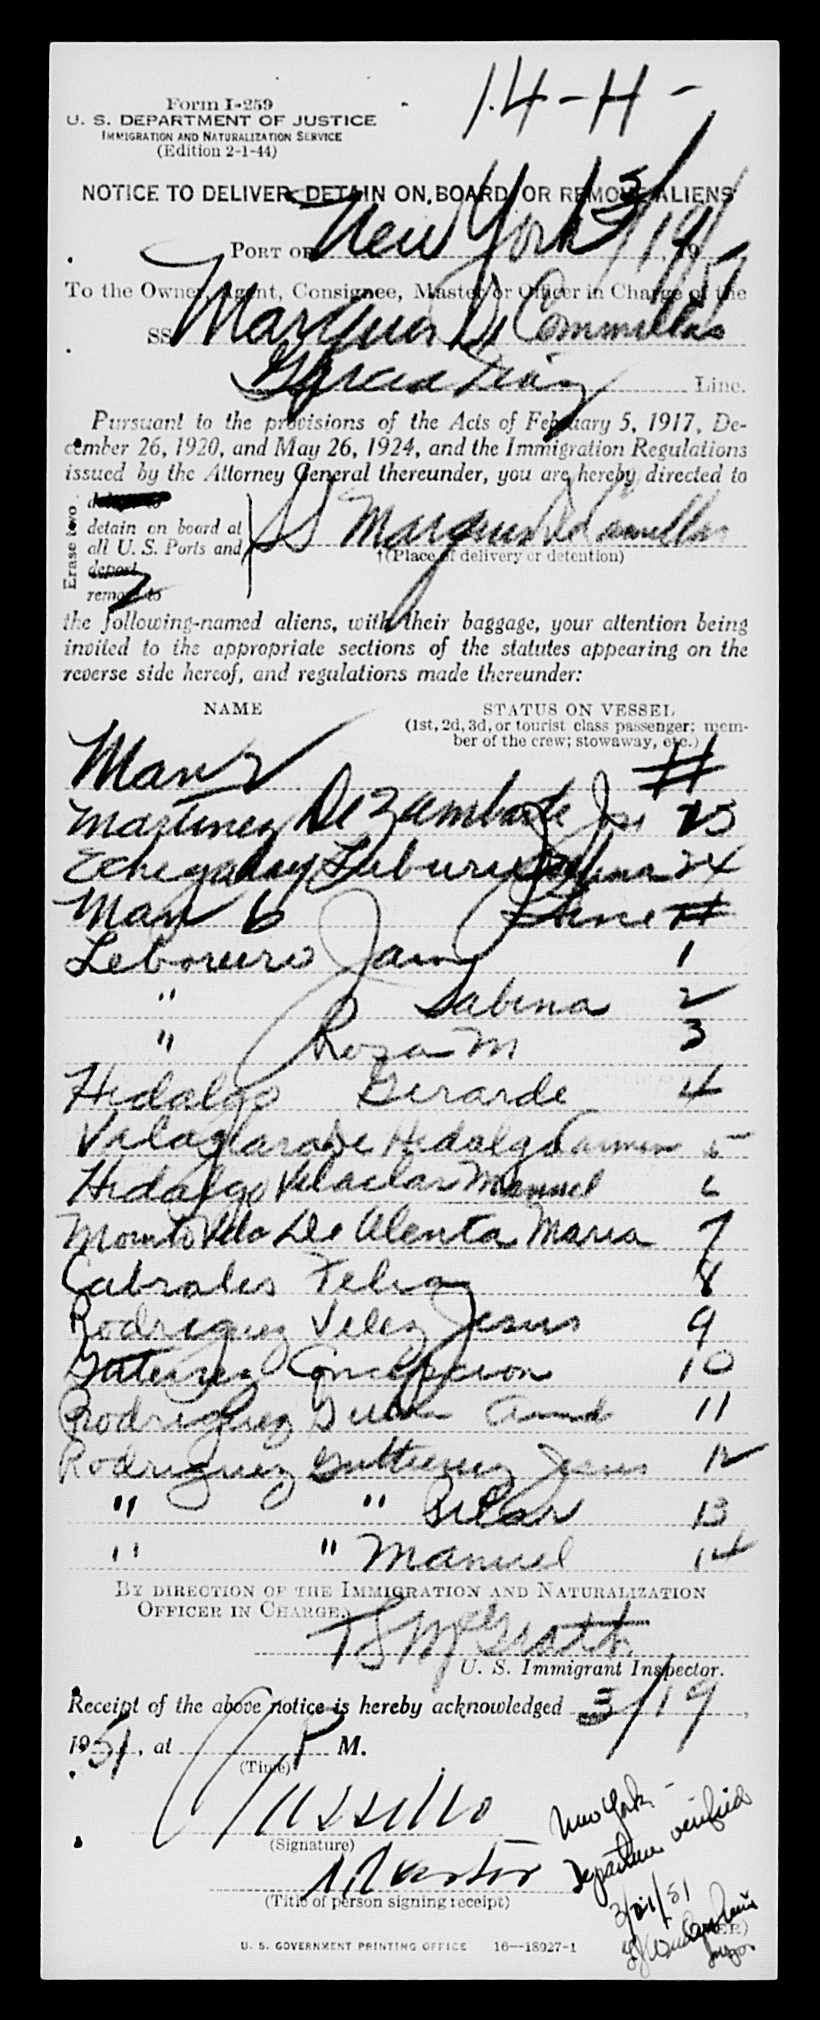 14-H-
Form I-259
U. S. DEPARTMENT OF JUSTICE
IMMIGRATION AND NATURALIZATION SERVICE
(Edition 2-1-44)
NOTICE TO DELIVER, DETAIN ON BOARD, OR REMOVE ALIENS
PORT OF New York 3/19/51, 19
To the Owner, Agent, Consignee, Master or Officer in Charge of the
SS Marques De Commillas
Garcia Diaz Line.
Pursuant to the provisions of the Acts of February 5, 1917, De-
cember 26, 1920, and May 26, 1924, and the Immigration Regulations
issued by the Attorney General thereunder, you are hereby directed to
Erase two.
detain on board at
all U. S. Ports and
deport
remove to
SS Marques De Camillas
†(Place of delivery or detention)
the following-named aliens, with their baggage, your attention being
invited to the appropriate sections of the statutes appearing on the
reverse side hereof, and regulations made thereunder:
NAME STATUS ON VESSEL
(1st, 2d, 3d, or tourist class passenger; mem-
ber of the crew; stowaway, etc.)
Man 2 #
Martinez De Zambrate Jse 23
Echegaray Luburu 24
Man 6 Line #
Leboreiro Jaime 1
" Sabina 2
" Rosa M 3
Hidalgo Gerarde 4
Hidalgo Carmen 5
Hidalgo Vilaclar Manuel 6
De Alenta Maria 7
Cabrales Felix 8
Rodriguez Velez Jesus 9
Gutierrez Concepcion 10
Rodriguez 11
Rodriguez Guttierrez Jesus 12
" " Pilar 13
" " Manuel 14
BY DIRECTION OF THE IMMIGRATION AND NATURALIZATION
OFFICER IN CHARGE.
T S McGrath
U. S. Immigrant Inspector.
Receipt of the above notice is hereby acknowledged 3/19,
1951, at P M.
(Time)
(Signature)
Master
(Title of person signing receipt)
New York -
Departure verified
3/21/51
U. S. GOVERNMENT PRINTING OFFICE 16—18927-1